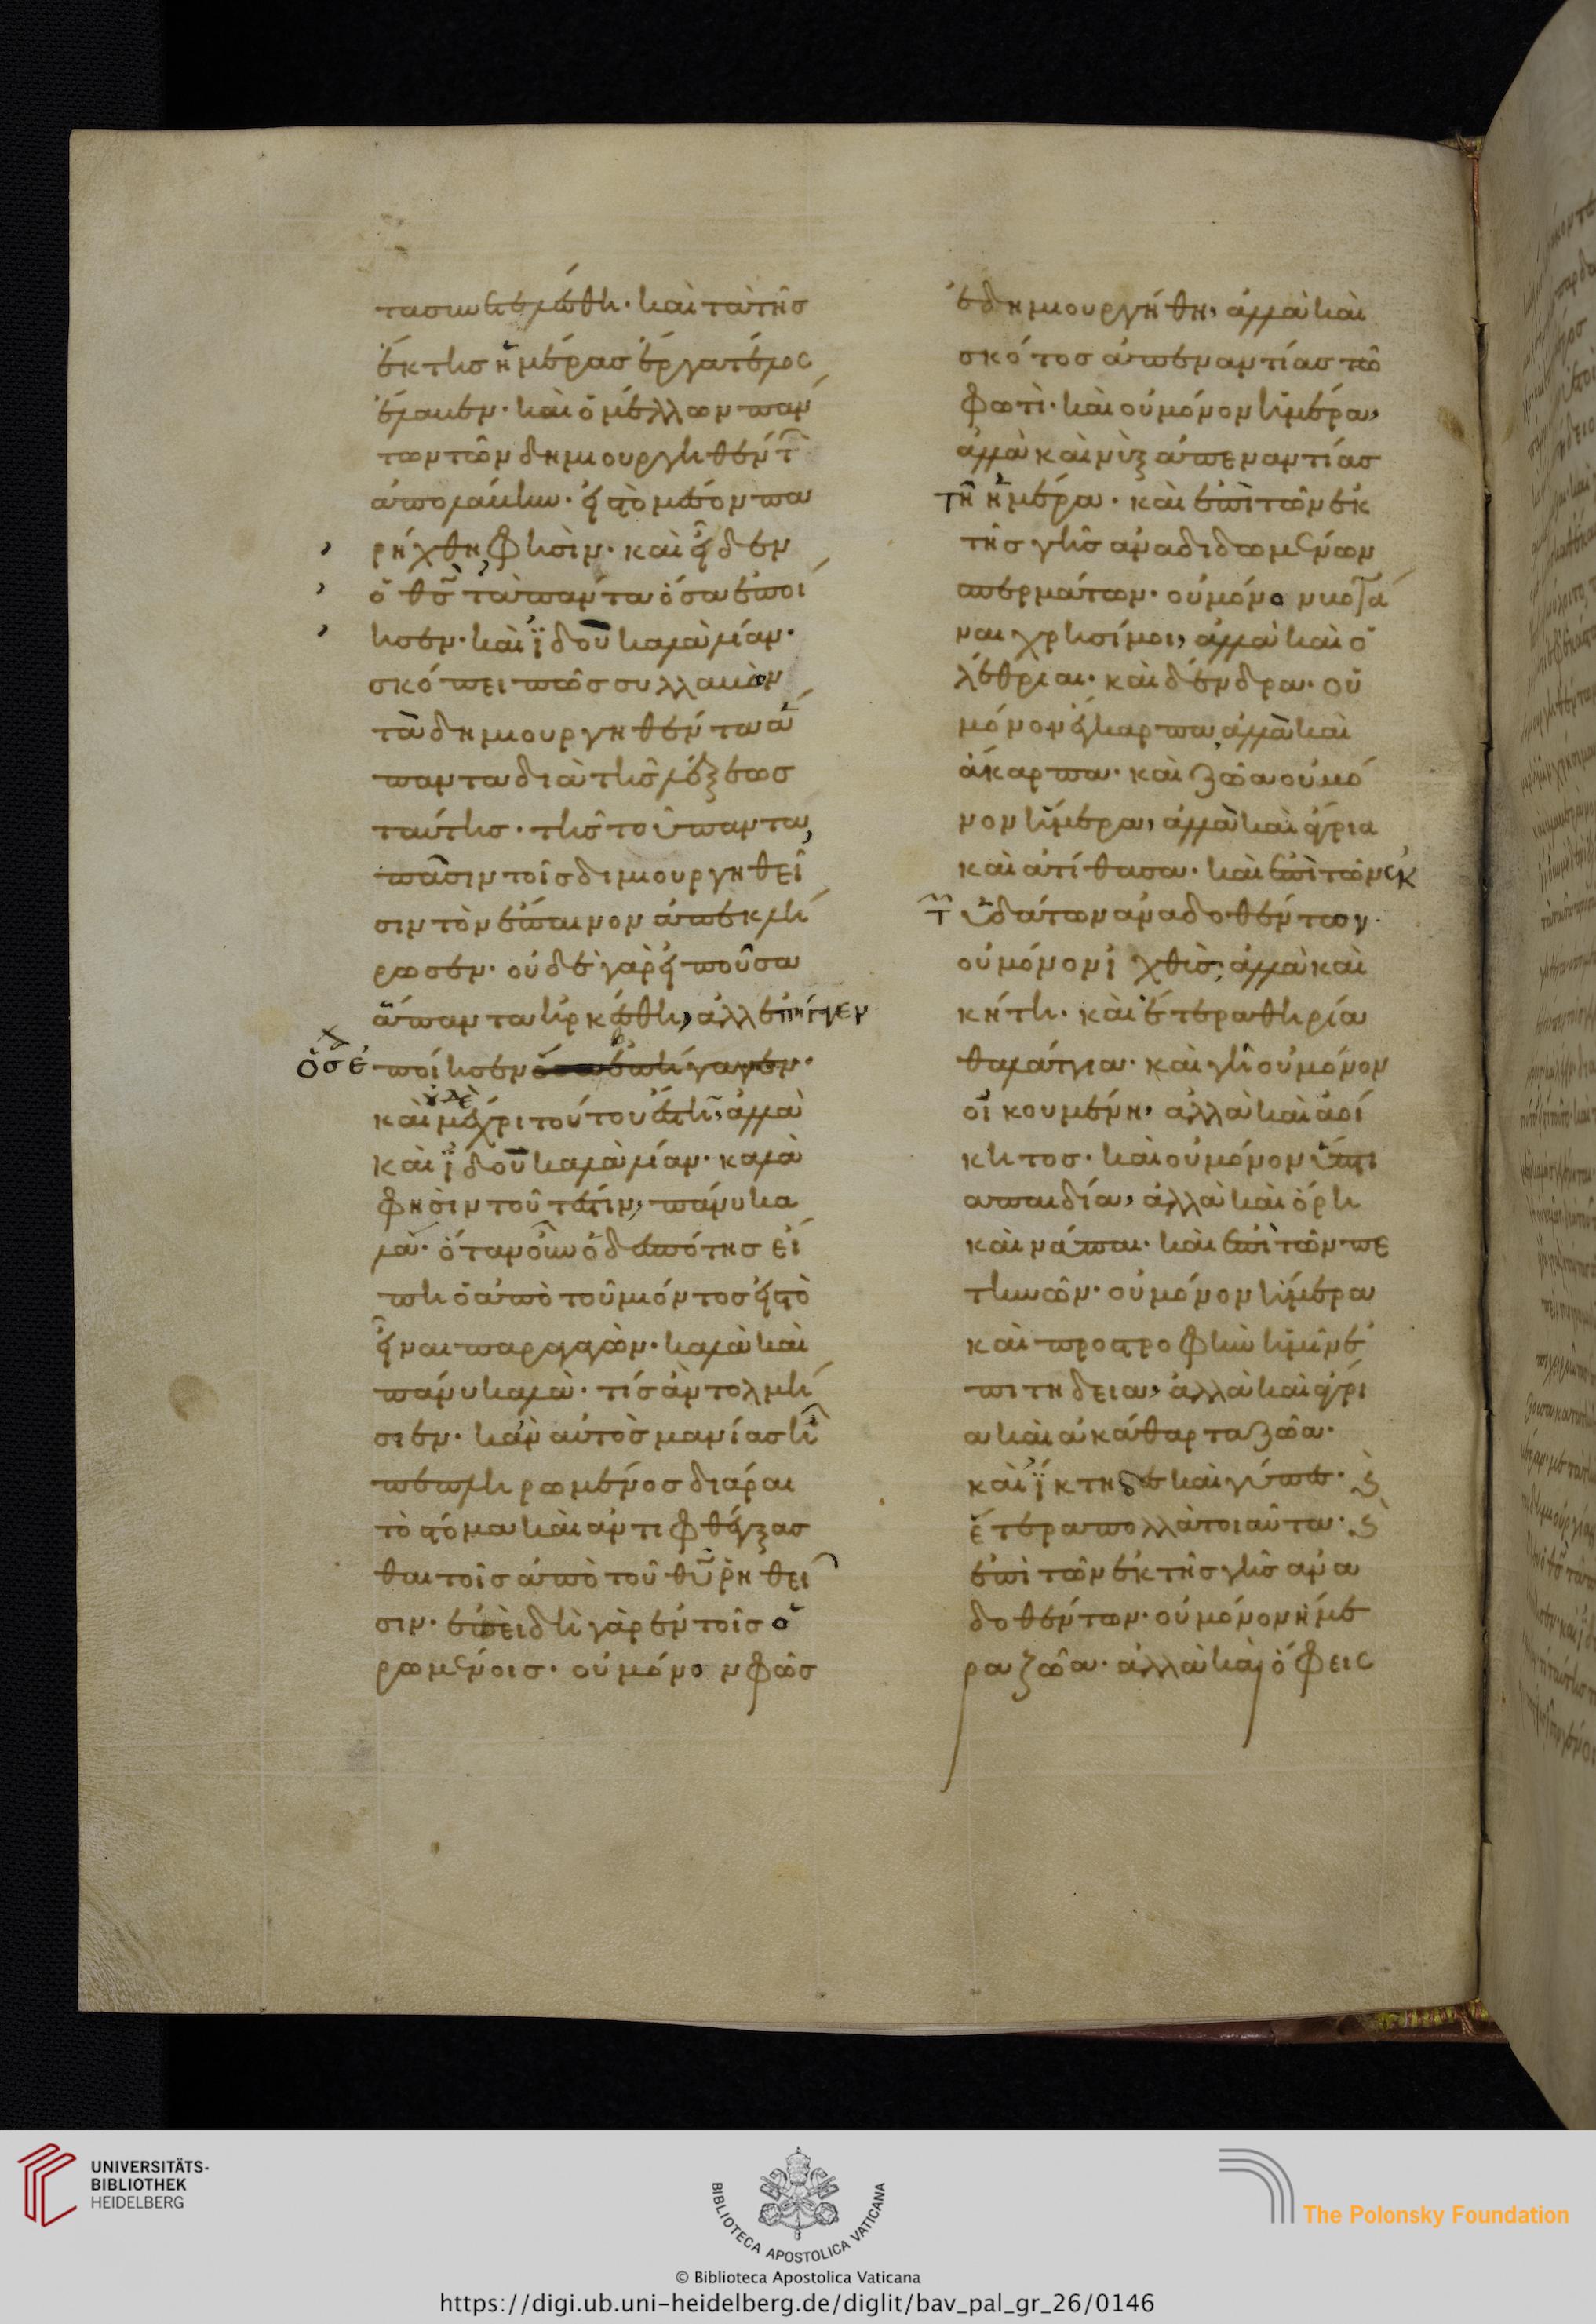 τα συνεπληρώθη· καὶ τὰ τῆς
ἕκτης ἡμέρας ἔργα τέλος
ἔλαβεν· καὶ ὁ μέλλων πάν
των τῶν δημιουργηθέντ
ἀπολαύειν·
ρήχθη φησίν· καὶ εἶδεν
ὁ θς τὰ πάντα ὅσα ἐποί
ησεν· καὶ ἰδοὺ καλὰ λίαν·
σκόπει πῶς συλλαβὼν
τὰ δημιουργηθέντα ἅ
παντα διὰ τῆς λέξεως
ταύτης· τῆς τὸ πάντα,
πᾶσιν τοῖς διμιουργηθεῖ
σιν τὸν ἔπαινον ἀπεκλή
ρωσεν· οὐδὲ γὰρ εἰποῦσα
ἅπαντα ἠρκέσθη, ἀλλ ἐπήγαγεν
ὅσ ἐ ποίησεν ὅσα ἐπήγαγεν·
καὶ μέχρι τούτου ἔστη, ἀλλὰ
καὶ ἰδοὺ καλὰ λίαν· καλὰ
φησὶν τοῦτ ἔστιν, πάνυ κα
λά· ὅταν οὖν ὁ δεσπότης εἴ
πη ὁ ἀπὸ τοῦ μὴ ὄντος εἰς τὸ
εἶναι παραγαγὼν· καλὰ καὶ
πάνυ καλὰ· τίς ἂν τολμή
σιεν· κἂν αὐτὸς μανίας ἦ
πεπληρωμένος διάραι
τὸ στόμα καὶ ἀντιφθέγξασ
θαι τοῖς ἀπὸ τοῦ θυ ῥηθεῖ
σιν· ἐπειδὴ γὰρ ἐν τοῖς ὁ
ρωμένοις· οὐ μόνον φῶς
ἐδημιουργήθη, ἀλλὰ καὶ
σκότος ἀπεναντίας τῶ
φωτὶ· καὶ οὐ μόνον ἡμέρα,
ἀλλὰ καὶ νὺξ ἀπεναντίας
τῆ ἡμέρα· καὶ ἐπὶ τῶν ἐκ
τῆς γῆς ἀναδιδωμένων
σπερμάτων· οὐ μόνον βοτά
ναι χρησίμοι, ἀλλὰ καὶ ὀ
λέθριαι· καὶ δένδρα· οὐ
μόνον ἔγκαρπα ἀλλὰ καὶ
ἄκαρπα· καὶ ζῶα οὐ μό
νον ἥμερα, ἀλλὰ καὶ ἄγρια
καὶ ἀτίθασα· καὶ ἐπὶ τῶν ἐκ
τ ὑδάτων ἀναδοθέντων·
οὐ μόνον ἰχθὺς, ἀλλὰ καὶ
κήτη· καὶ ἕτερα θηρία
θαλάττια· καὶ γῆ οὐ μόνον
οἰκουμένη, ἀλλὰ καὶ ἀοί
κητος· καὶ οὐ μόνον ὕπτι
α πεδία, ἀλλὰ καὶ ὄρη
καὶ νάπαι· καὶ ἐπὶ τῶν πε
τηνῶν· οὐ μόνον ἥμερα
καὶ προστροφὴν ἡμῖν ἐ
πιτήδεια, ἀλλὰ καὶ ἄγρι
α καὶ ἀκάθαρτα ζῶα·
καὶ ἴκτηδες καὶ γύπες· καὶ
ἕτερα πολλὰ τοιαῦτα· καὶ
ἐπὶ τῶν ἐκ τῆς γῆς ἀνα
δοθέντων· οὐ μόνον ἥμε
ρα ζῶα· ἀλλὰ καὶ ὄφεις
UNIVERSITÄTS-
BIBLIOTHEK
HEIDELBERG
BIBLIOTECA APOSTOLICA VATICANA
The Polonsky Foundation
© Biblioteca Apostolica Vaticana
https://digi.ub.uni-heidelberg.de/diglit/bav_pal_gr_26/0146